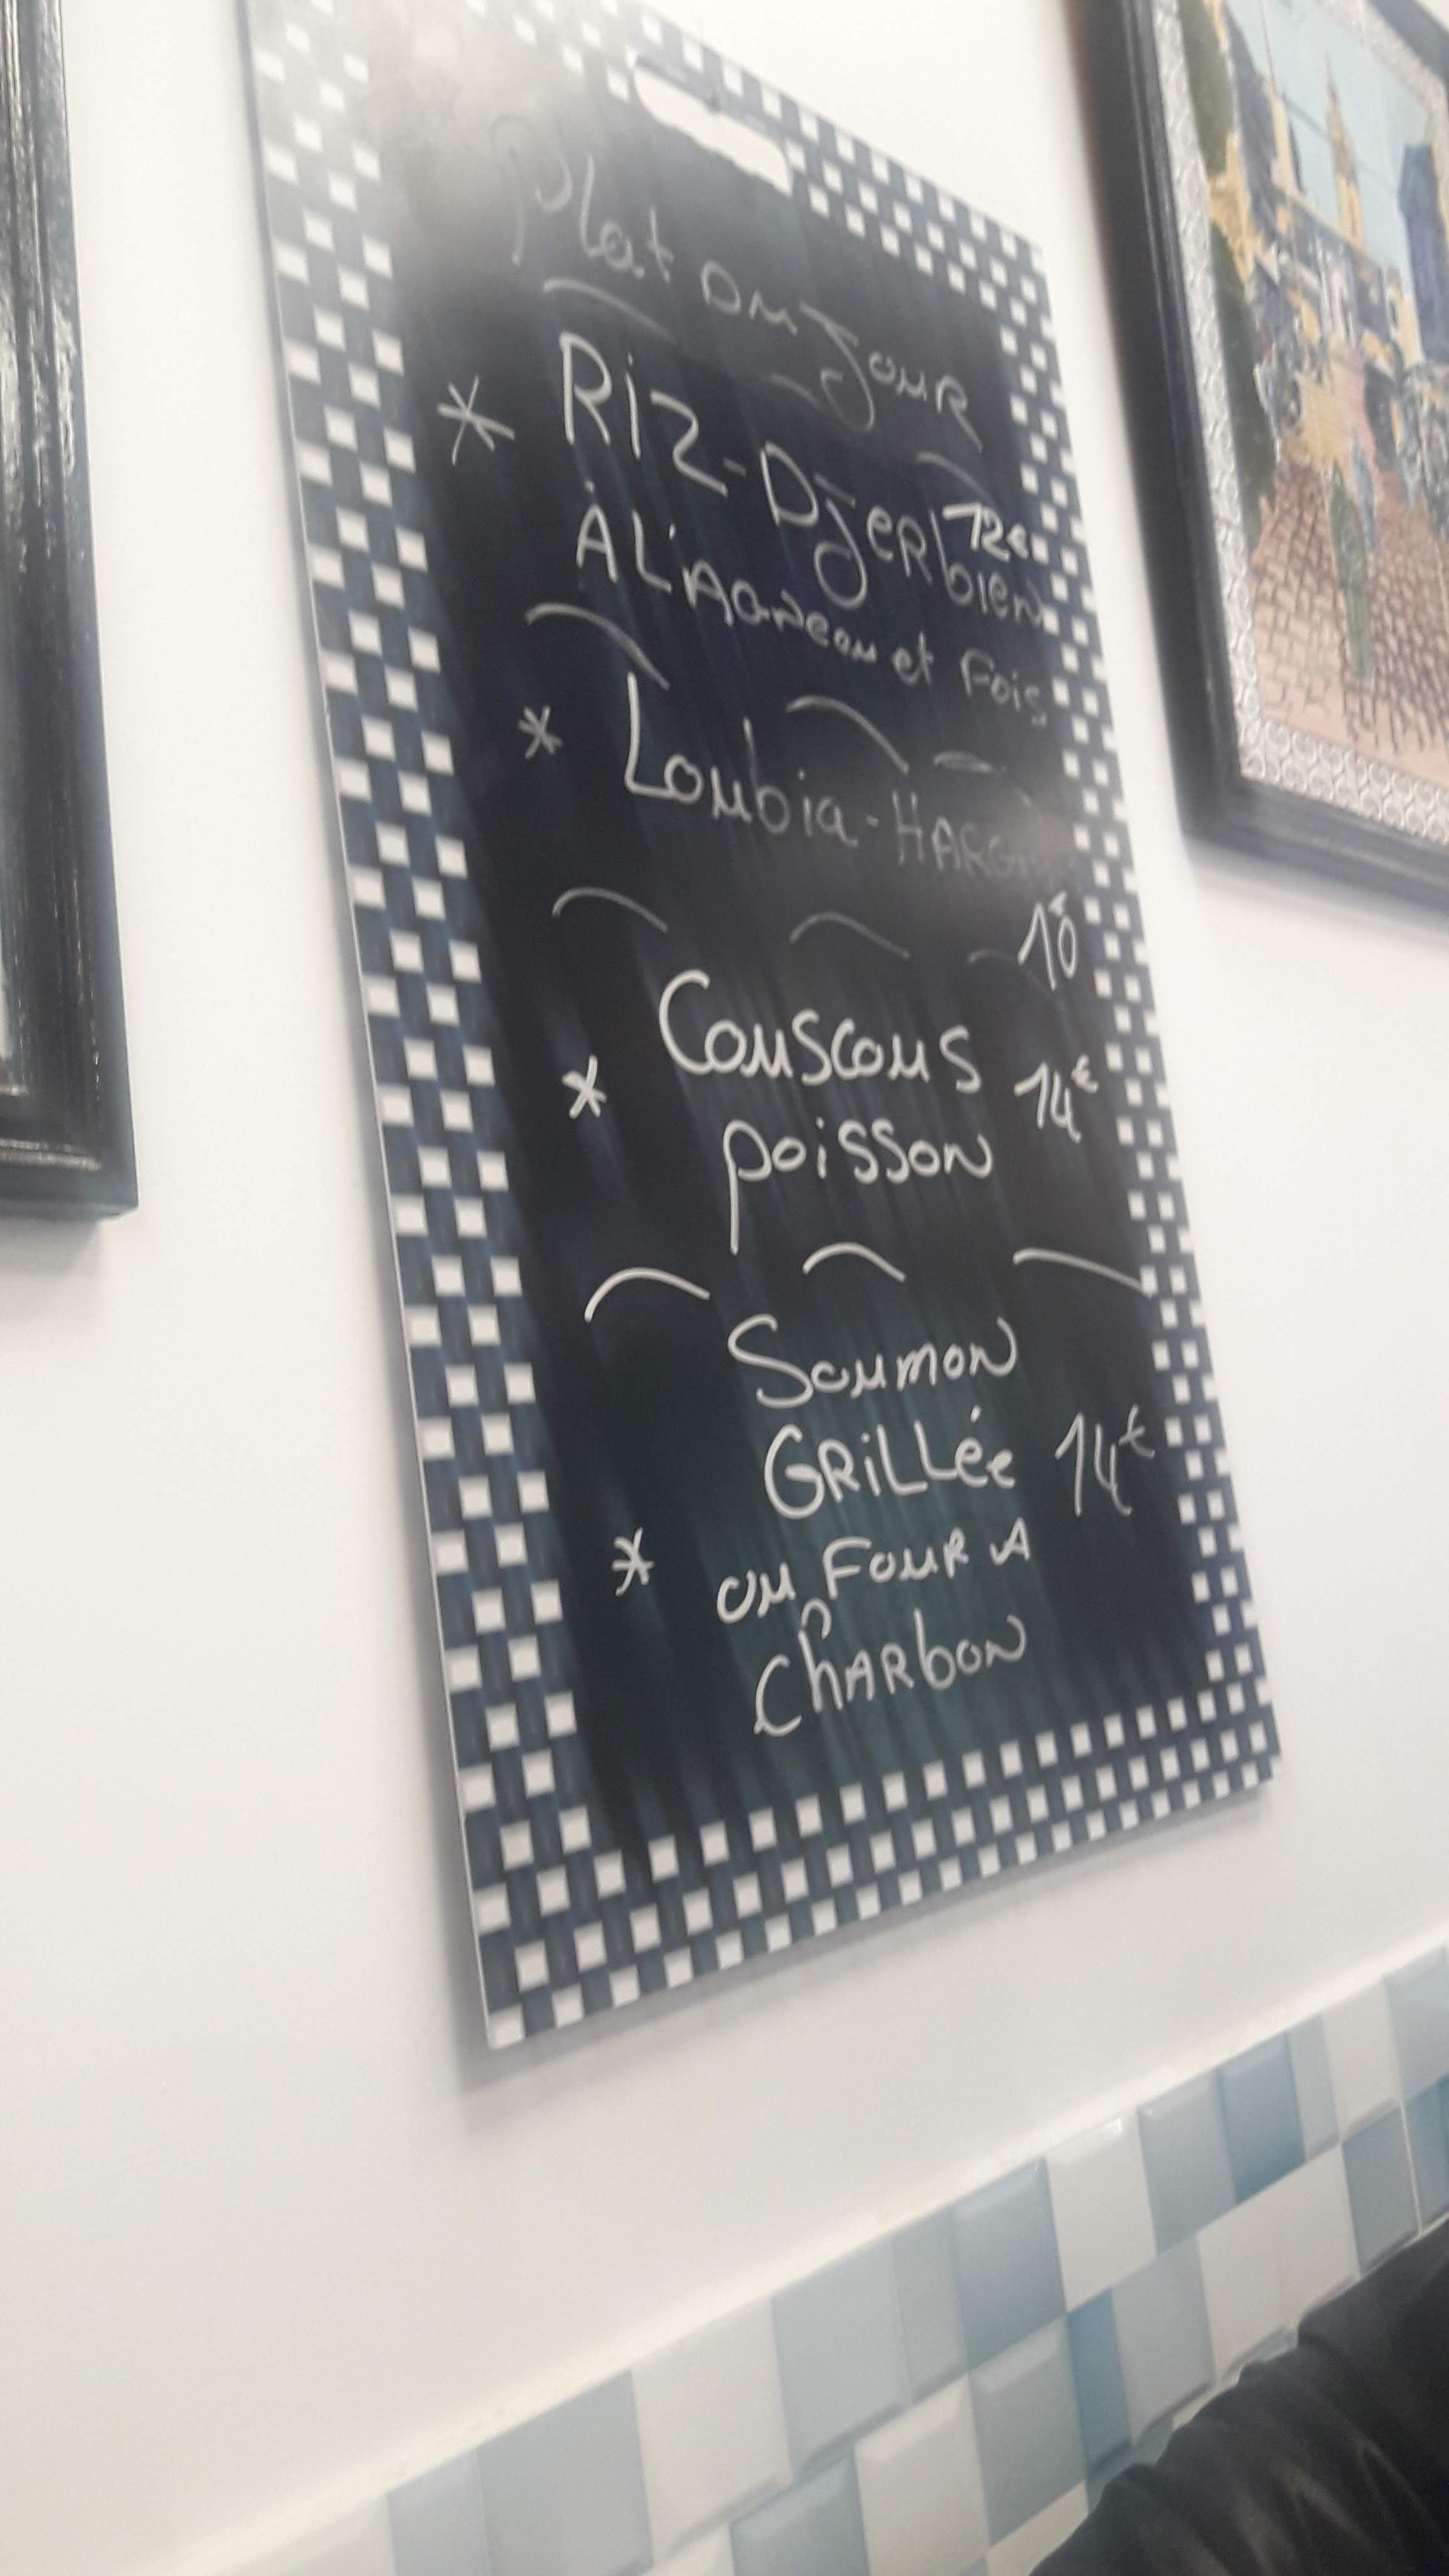 Plat Du Jour
* Riz-Djerbien 12€
À L'Agneau et Fois
* Loubia-
10€
Couscous
* 14€
poisson
Saumon
GRiLLée 14€
* au Four A
ChARbon